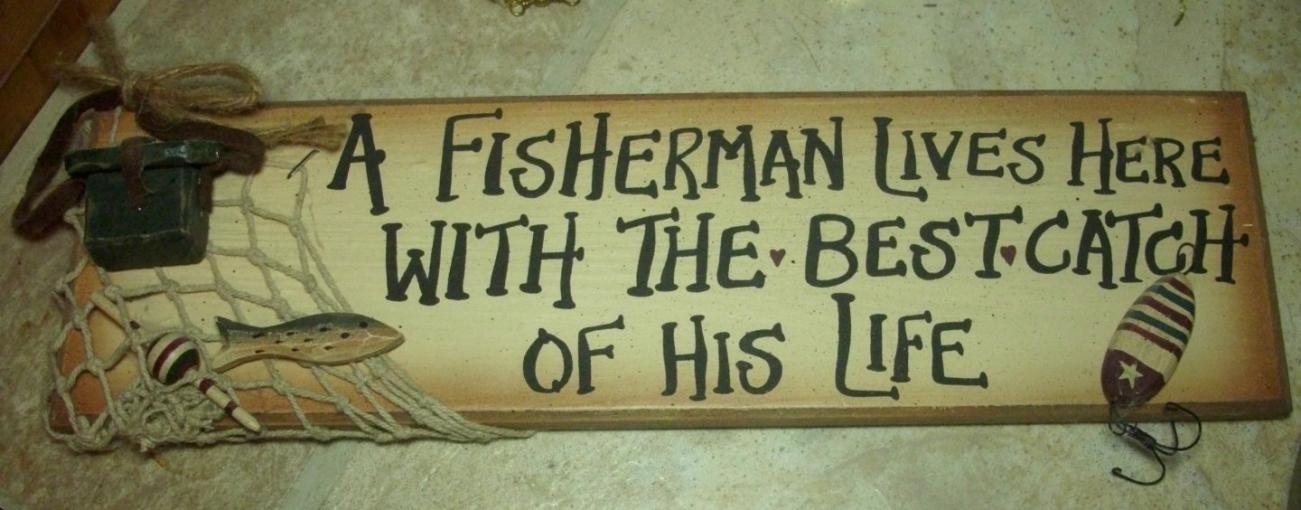 A FISHERMAN LIVES HERE
WITH THE BEST CATCH
OF HIS LIFE